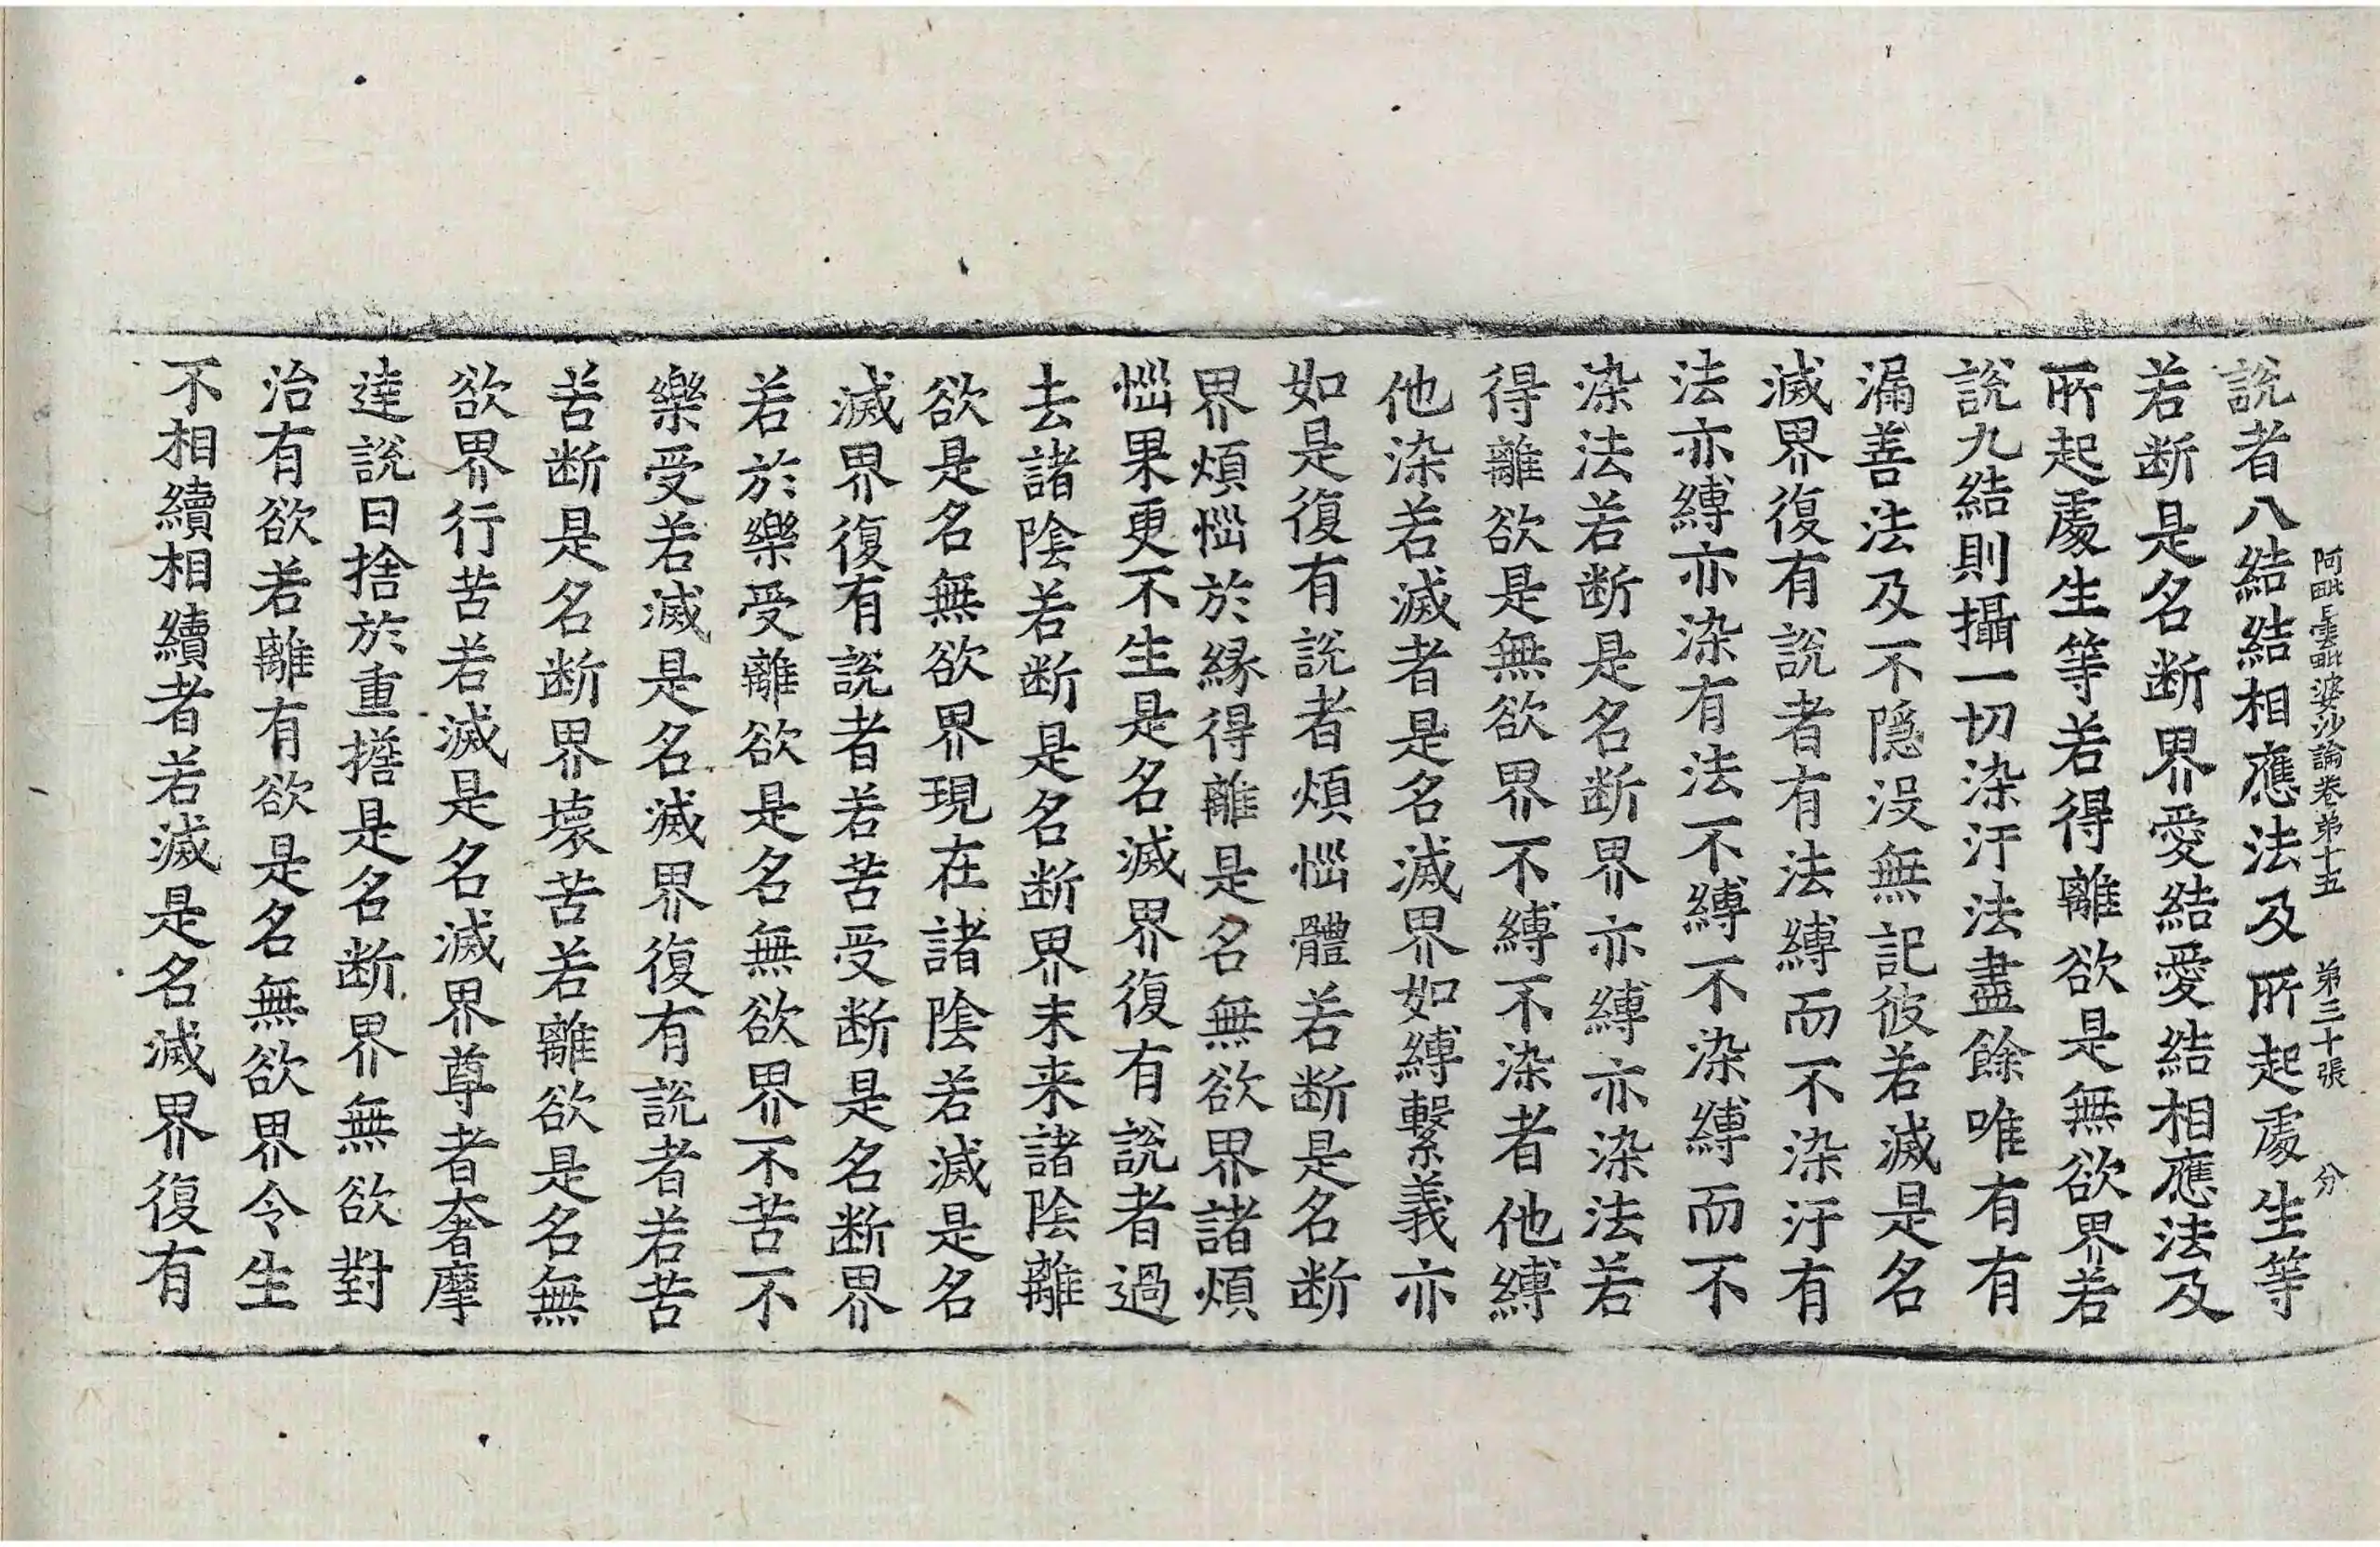 阿毗曇毗婆沙論卷苐十五　苐三十張　分
說者八結結相應法及所起處生等
若断是名断界愛結愛結相應法及
所起處生等若得離欲是無欲界若
說九結則攝一切染汙法盡餘唯有有
漏善法及不隱没無記彼若滅是名
滅界復有說者有法縛而不染汙有
法亦縛亦染有法不縛不染縛而不
染法若断是名断界亦縛亦染法若
得離欲是無欲界不縛不染者他縛
他染若滅者是名滅界如縛繫義亦
如是復有說者煩惱體若断是名断
界煩惱於緣得離是名無欲界諸煩
惱果更不生是名滅界復有說者過
去諸陰若断是名断界末来諸陰離
欲是名無欲界現在諸陰若滅是名
滅界復有說者若苦受断是名断界
若於樂受離欲是名無欲界不苦不
樂受若滅是名滅界復有說者若苦
苦断是名断界壞苦若離欲是名無
欲界行苦若滅是名滅界尊者奢摩
達說曰捨於重擔是名断界無欲對
治有欲若離有欲是名無欲界令生
不相續相續者若滅是名滅界復有